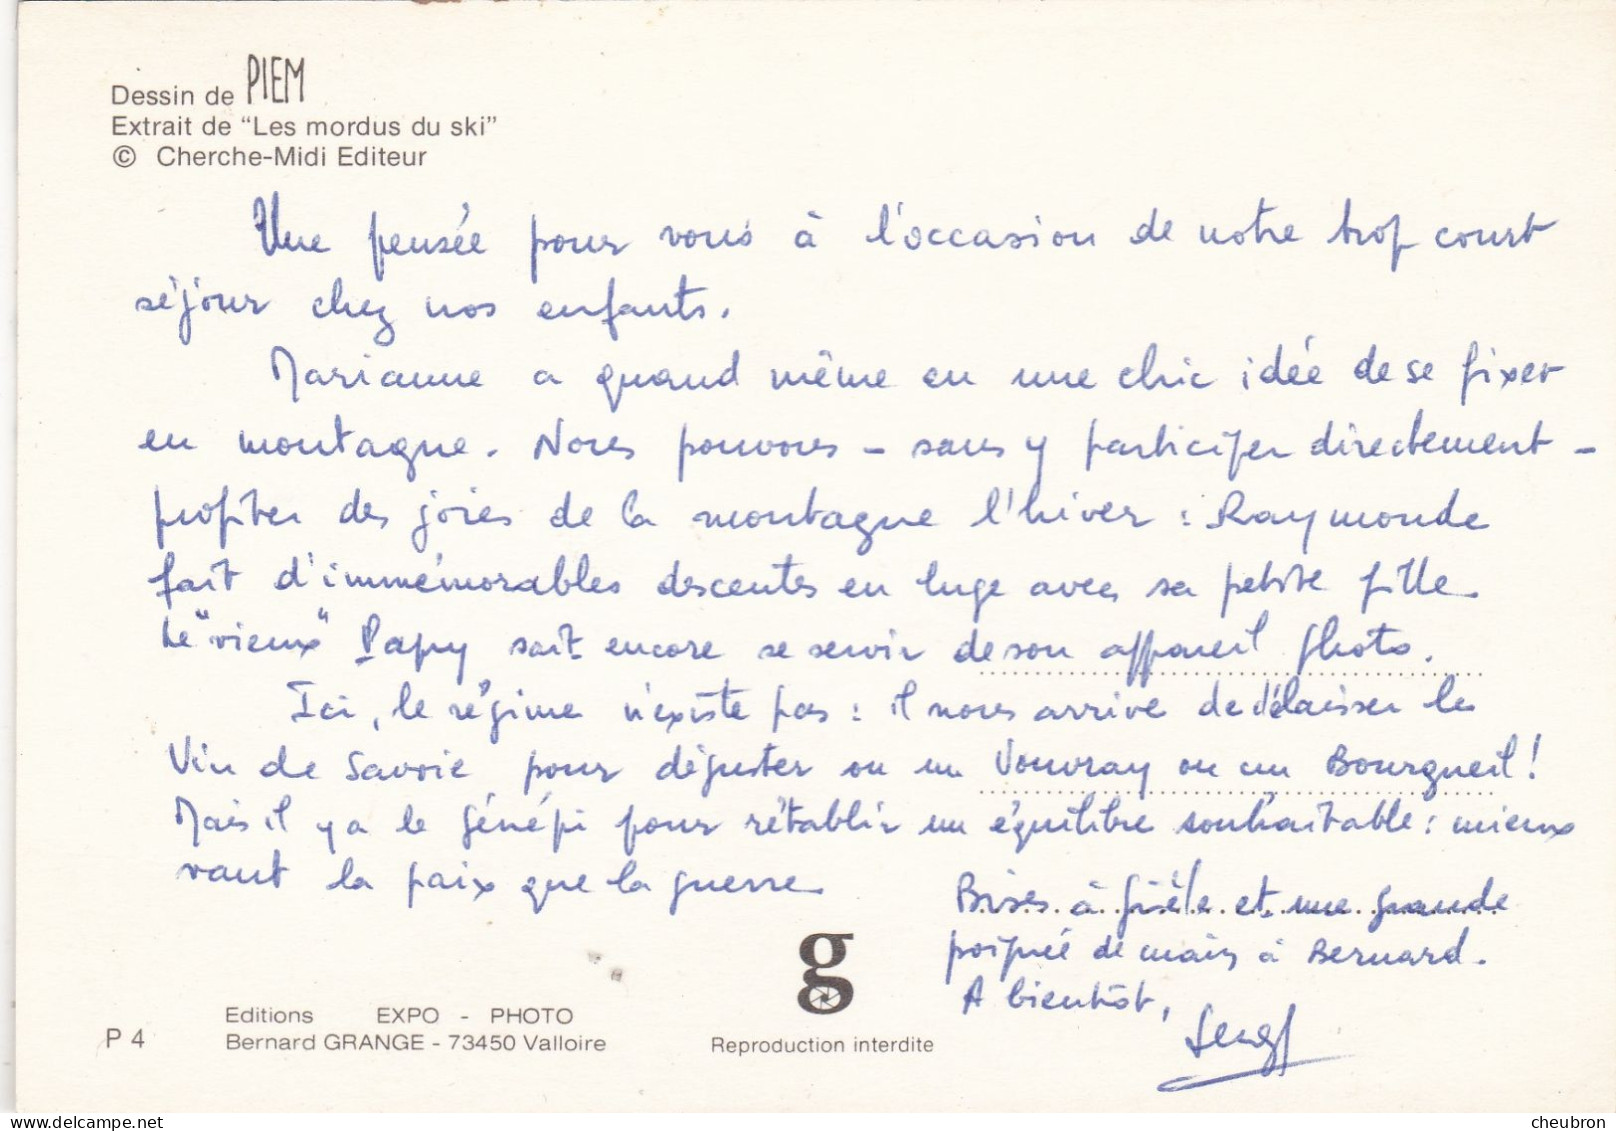 Dessin de PIEM
Extrait de “Les mordus du ski”
© Cherche-Midi Editeur
Une pensée pour vous à l'occasion de notre trop court
séjour chez nos enfants.
Marianne a quand même eu une chic idée de se fixer
en montagne. Nous pouvons - sans y participer directement -
profiter des joies de la montagne l'hiver : Raymonde
fait d'immémorables descentes en luge avec sa petite fille
Le "vieux" Papy sait encore se servir de son appareil photo.
Ici, le régime n'existe pas : il nous arrive de délaisser le
Vin de Savoie pour déguster ou un Vouvray ou un Bourgueil !
Mais il y a le Génépi pour rétablir un équilibre souhaitable : mieux
vaut la paix que la guerre
Bises à Gisèle et une grande
poignée de main à Bernard.
A bientôt,
Serge
P 4
Editions EXPO - PHOTO
Bernard GRANGE - 73450 Valloire
g
Reproduction interdite
delcampe.net
cheubron